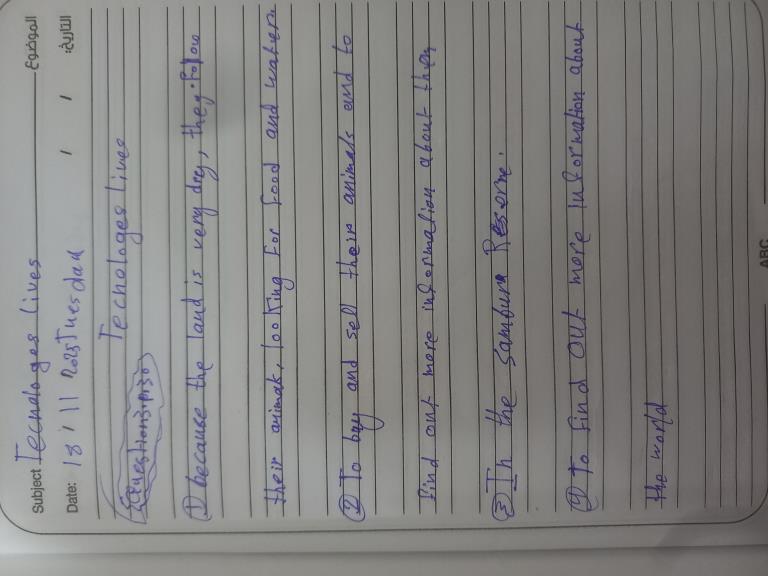 Subject Tecnologes lives الموضوع
Date: 18 / 11 2025 Tuesday / / التاريخ:
Tecnologes lives
Question3,p:30
① because the land is very dry, they follow
their animals, looking for food and water.
② To buy and sell their animals and to
find out more information about them
③ In the Samburu Reserve.
④ To find out more information about
the world
ABC